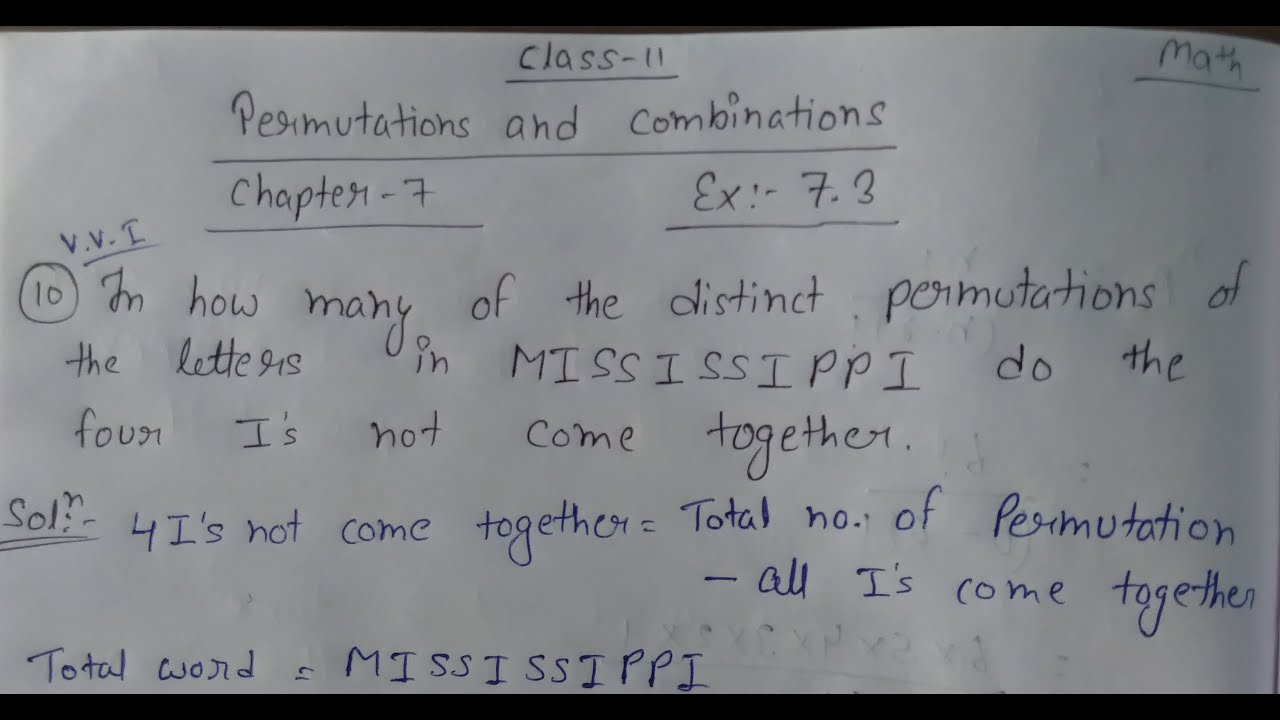 Class-11
Math
Permutations and combinations
Chapter-7 Ex:- 7.3
V.V.I
10 In how many of the distinct permutations of
the letters in MISSISSIPPI do the
four I's not come together.
Solⁿ:- 4 I's not come together = Total no. of Permutation
- all I's come together
Total word = MISSISSIPPI